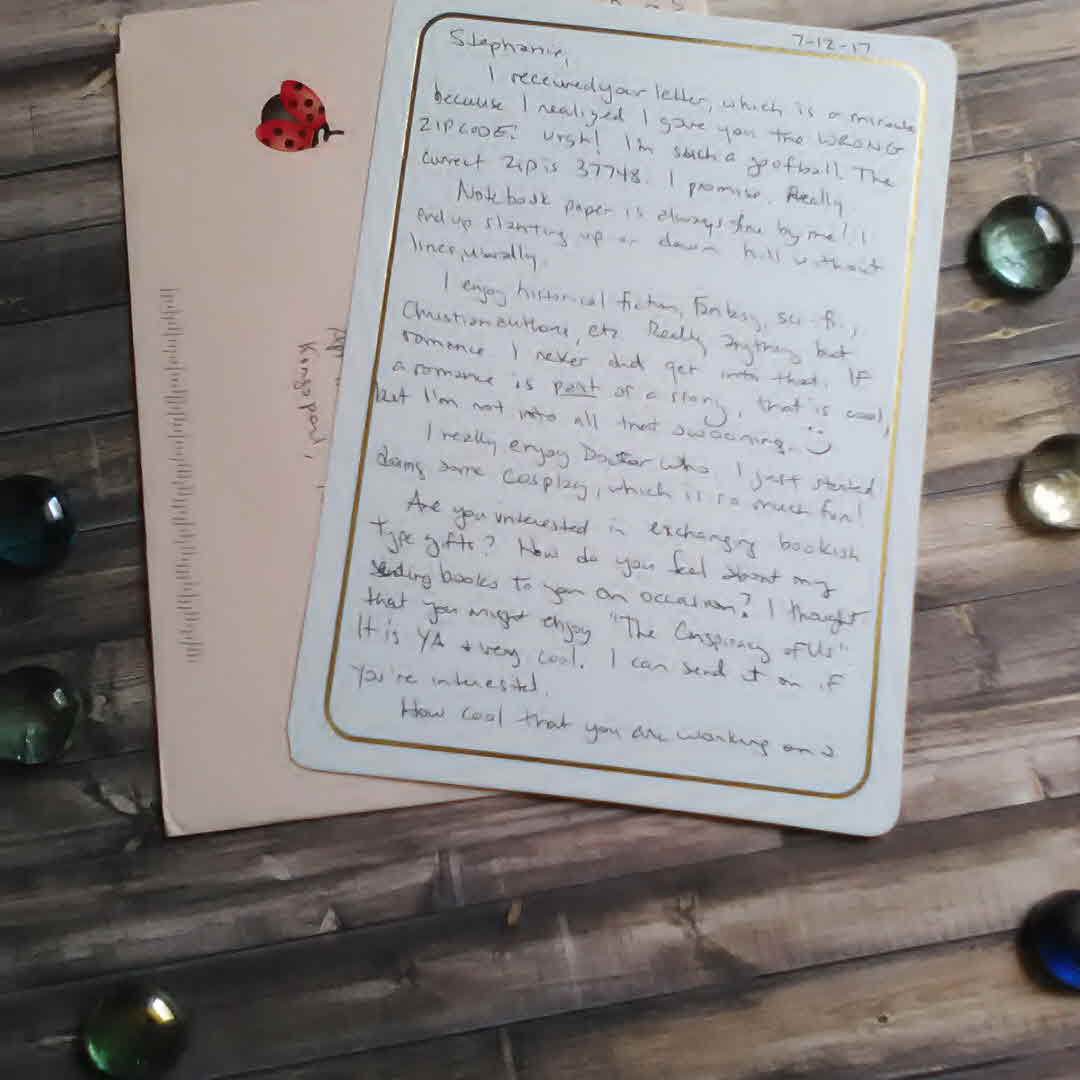 7-12-17
Stephanie,
I received your letter, which is a miracle
because I realized I gave you the WRONG
ZIPCODE! Urgh! I'm such a goofball. The
current zip is 37748. I promise. Really.
Notebook paper is always fine by me! I
end up slanting up or down hill without
lines, usually.
I enjoy historical fiction, fantasy, sci-fi,
Christian authors, etc. Really anything but
romance. I never did get into that. If
a romance is part of a story, that is cool,
but I'm not into all that swooning. :)
I really enjoy Doctor Who. I just started
doing some cosplay, which is so much fun!
Are you interested in exchanging bookish
type gifts? How do you feel about my
sending books to you on occasion? I thought
that you might enjoy "The Conspiracy of Us".
It is YA + very cool. I can send it on if
you're interested.
How cool that you are working on a
Kingsport,